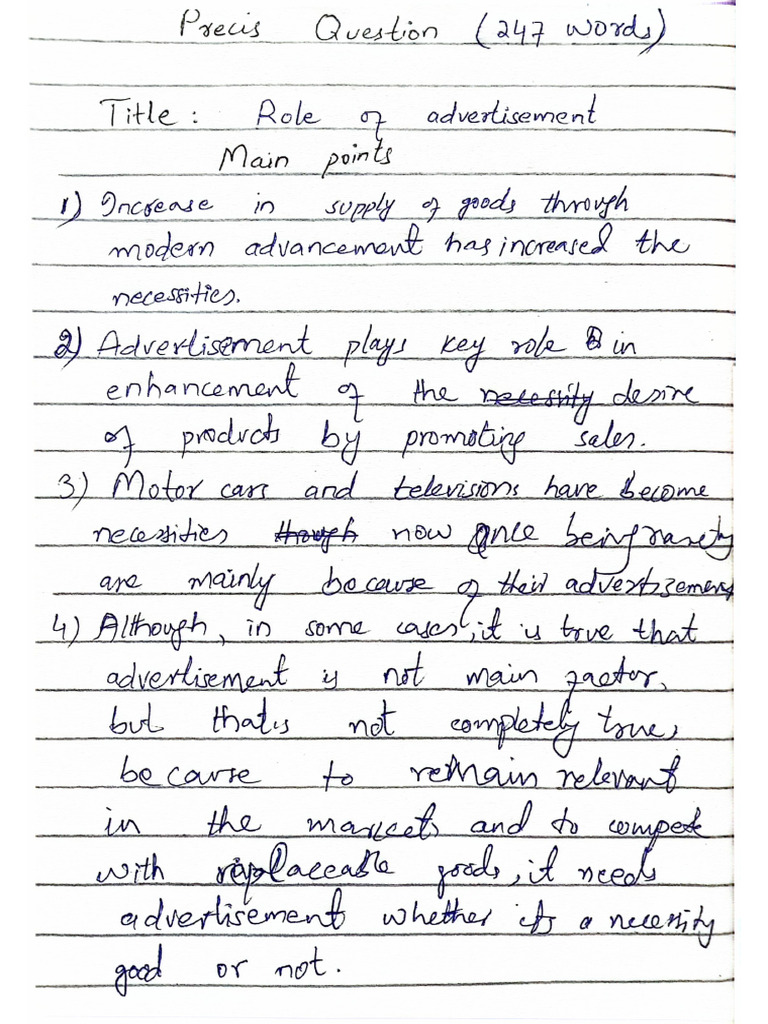 Precis Question (247 words)
Title : Role of advertisement
Main points
1) Increase in supply of goods through
modern advancement has increased the
necessities.
2) Advertisement plays key role in
enhancement of the necessity desire
of products by promoting sales.
3) Motor cars and televisions have become
necessities though now Once being rarety
are mainly because of their advertisement
4) Although, in some cases, it is true that
advertisement is not main factor,
but that's not completely true,
because to remain relevant
in the markets and to compete
with replaceable goods, it needs
advertisement whether its a necessity
good or not.